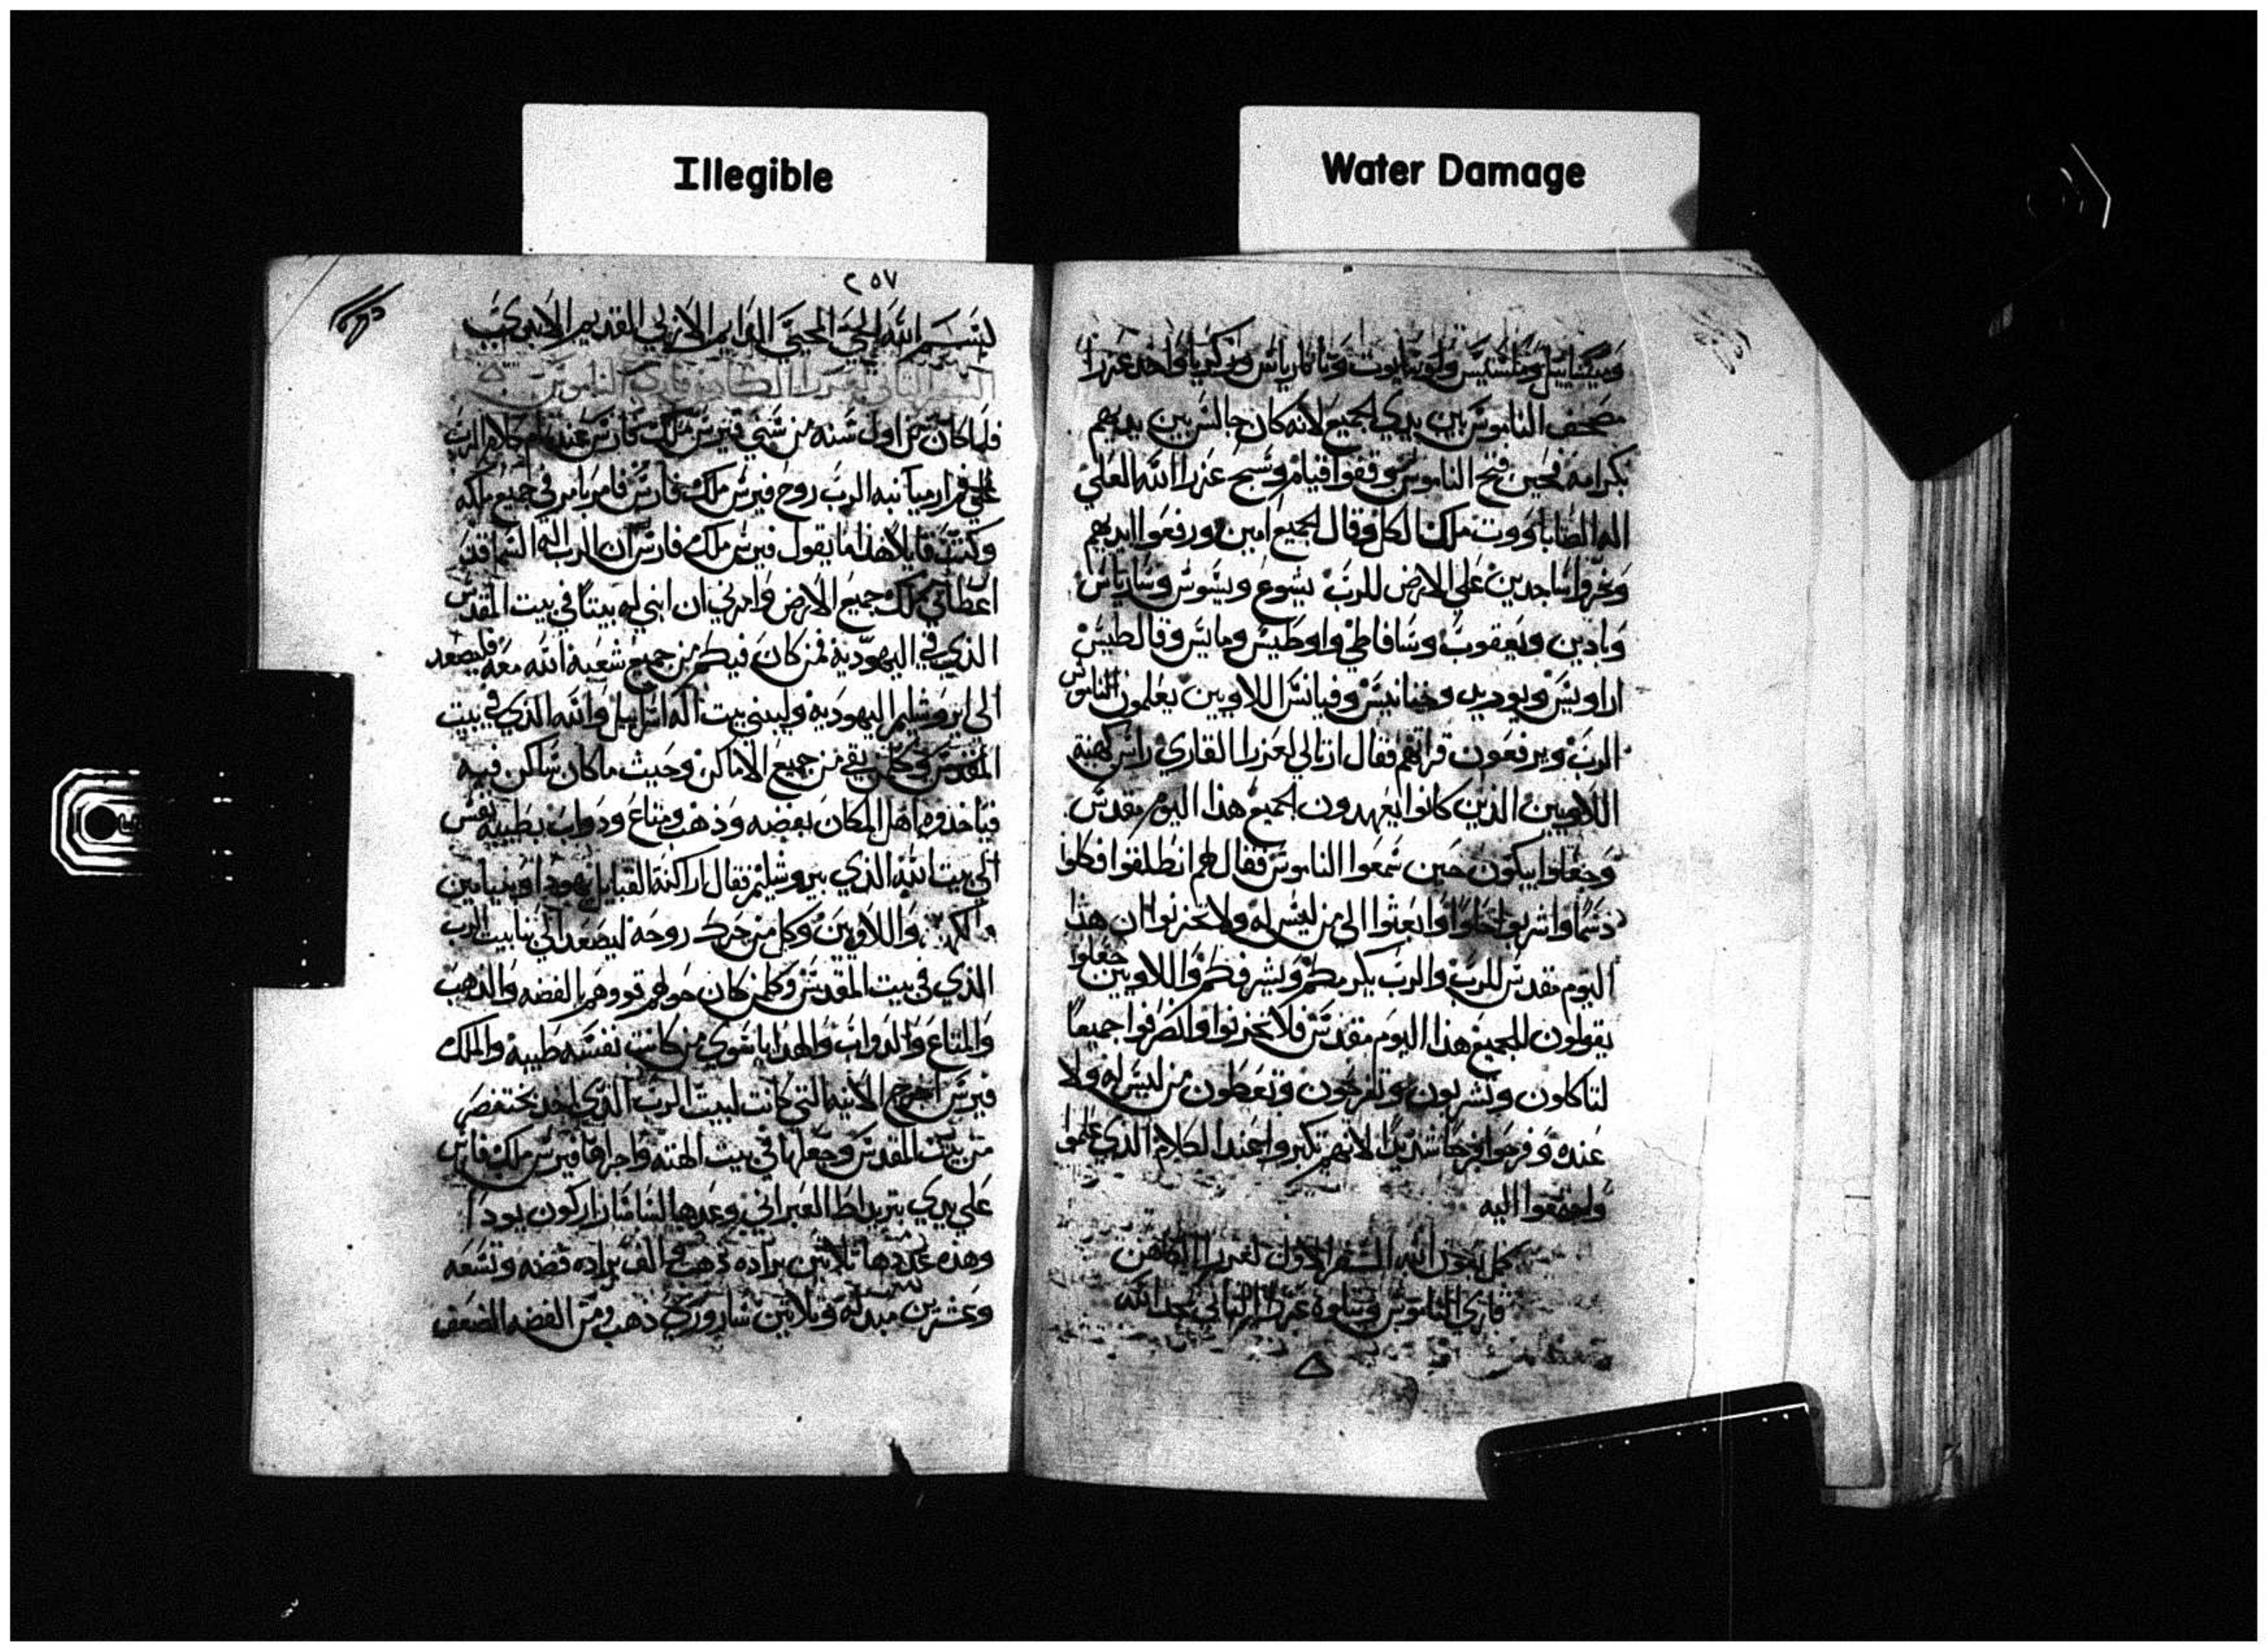 Illegible
Water Damage
وميشاييل وملشيس واوثالوت ونابارياس وزكريا واخد عزرا
مصحف الناموس بين يدي الجميع لانه كان جالس بين يديهم
بكرامه فحين فتح الناموس وقفوا قيام وسبح عزرا الله العلي
اله الصاباووت ملك الكل وقال الجميع امين ورفعوا ايديهم
وخروا ساجدين علي الارض للرب يشوع ويسوس وسارياس
وادين ويعقوب وساباطي واوطيس ومايس وقالطيس
اراويس ويوديد وحنانيس وفيانس اللاويين يعلمون الناموس
الرب ويرفعون قراتهم فقال ارتالي لعزرا القاري راس كهنة
اللاويين الذين كانوا يعهدون الجميع هذا اليوم مقدس
وجعلوا يبكون حين سمعوا الناموس فقال لهم انطلقوا فكلوا
دسما واشربوا حلوا وابعثوا الي من ليس له ولا تحزنوا ان هذا
اليوم مقدس للرب والرب يكرمكم ويشرفكم واللاويين جعلوا
يقولون للجميع هذا اليوم مقدس فلا تحزنوا وانصرفوا جميعا
لتاكلون وتشربون وتفرحون وتعطون من ليس له ولا
عنده وفرحوا فرحا شديدا لانهم تكبروا عند الكلام الذي علموا
واجتمعوا اليه
كمل بعون الله السفر الاول لعزرا الكاهن
قاري الناموس ويتلوه عزرا الثاني بمجد الله
٢٥٧
بسم الله الحي المحيي الدايم الازلي القديم الابدي نكتب
السفر الثاني لعزرا الكاهن قاري الناموس
فلما كان في اول سنه من سني فيرس ملك فارس عند تمام كلام الرب
علي فم ارميا نبه الرب روح فيرس ملك فارس فامر يامر في جميع ملكه
وكتب قايلا هذا ما يقول فيرس ملك فارس ان الرب اله السما قد
اعطاني ملك جميع الارض وامرني ان ابني له بيتا في بيت المقدس
الذي في اليهوديه فمن كان فيكم من جميع شعبه الله معه فليصعد
الي ايروشليم اليهوديه وليبني بيت اله اسراييل والله الذي في بيت
المقدس وكلمن بقي من جميع الاماكن وحيث ما كان ساكن فيه
فياخذوه اهل المكان بفضه وذهب ومتاع ودواب بطيبة نفس
الي بيت الله الذي بيروشليم فقال اراكنة القبايل يهودا وبنيامين
والكهنه واللاويين وكل من حرك روحه ليصعد الي بنا بيت الرب
الذي في بيت المقدس وكلمن كان حولهم قووهم بالفضه والذهب
والمتاع والدواب والهدايا سوي من كانت نفسه طيبه والملك
فيرس اخرج الانيه التي كانت لبيت الرب الذي اخد بختنصر
من بيت المقدس وجعلها في بيت الهته واخرجها فيرس ملك فارس
علي يدي بتريداطا العبراني وعدها لساسار اركون يودا
وهذه عددها ثلاثين براده ذهب الف براده فضه وتسعه
وعشرين مبدله وثلاثين ذهب ومن الفضه الضعف